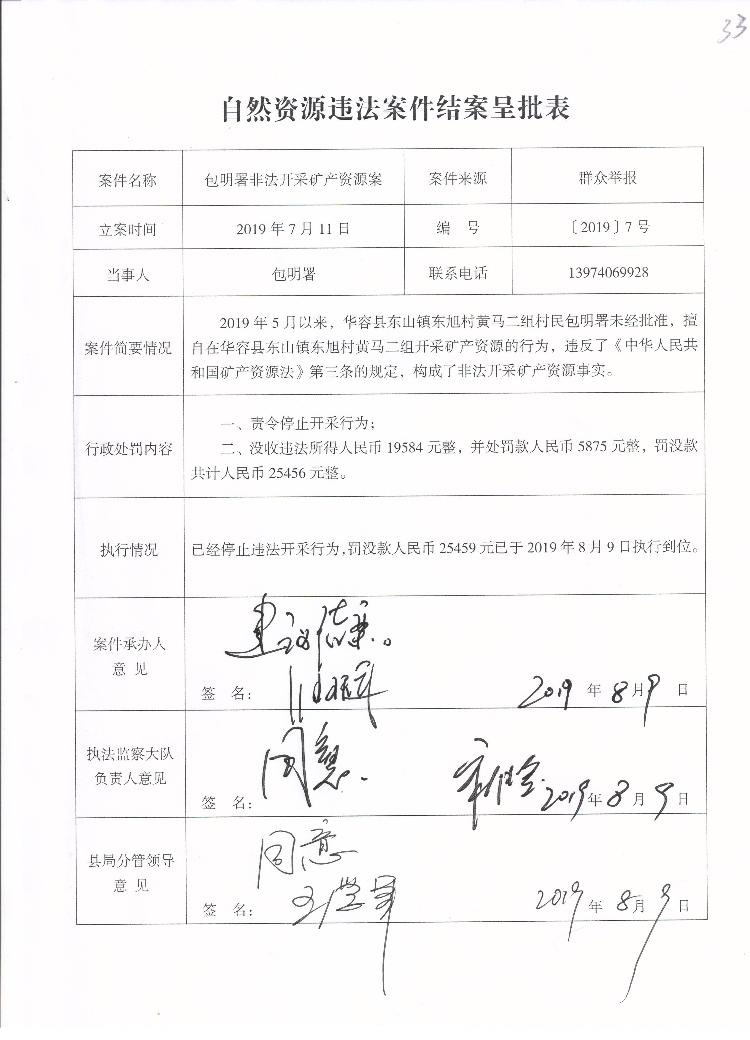 33
自然资源违法案件结案呈批表
案件名称 包明署非法开采矿产资源案 案件来源 群众举报
立案时间 2019 年 7 月 11 日 编 号 〔2019〕7 号
当事人 包明署 联系电话 13974069928
案件简要情况
2019 年 5 月以来，华容县东山镇东旭村黄马二组村民包明署未经批准，擅
自在华容县东山镇东旭村黄马二组开采矿产资源的行为，违反了《中华人民共
和国矿产资源法》第三条的规定，构成了非法开采矿产资源事实。
行政处罚内容
一、责令停止开采行为；
二、没收违法所得人民币 19584 元整，并处罚款人民币 5875 元整，罚没款
共计人民币 25456 元整。
执行情况 已经停止违法开采行为,罚没款人民币 25459 元已于 2019 年 8 月 9 日执行到位。
案件承办人
意 见
建议结案。
签 名： 2019 年 8 月 9 日
执法监察大队
负责人意见
同意.
签 名： 2019 年 8 月 9 日
县局分管领导
意 见
同意
签 名： 2019 年 8 月 9 日